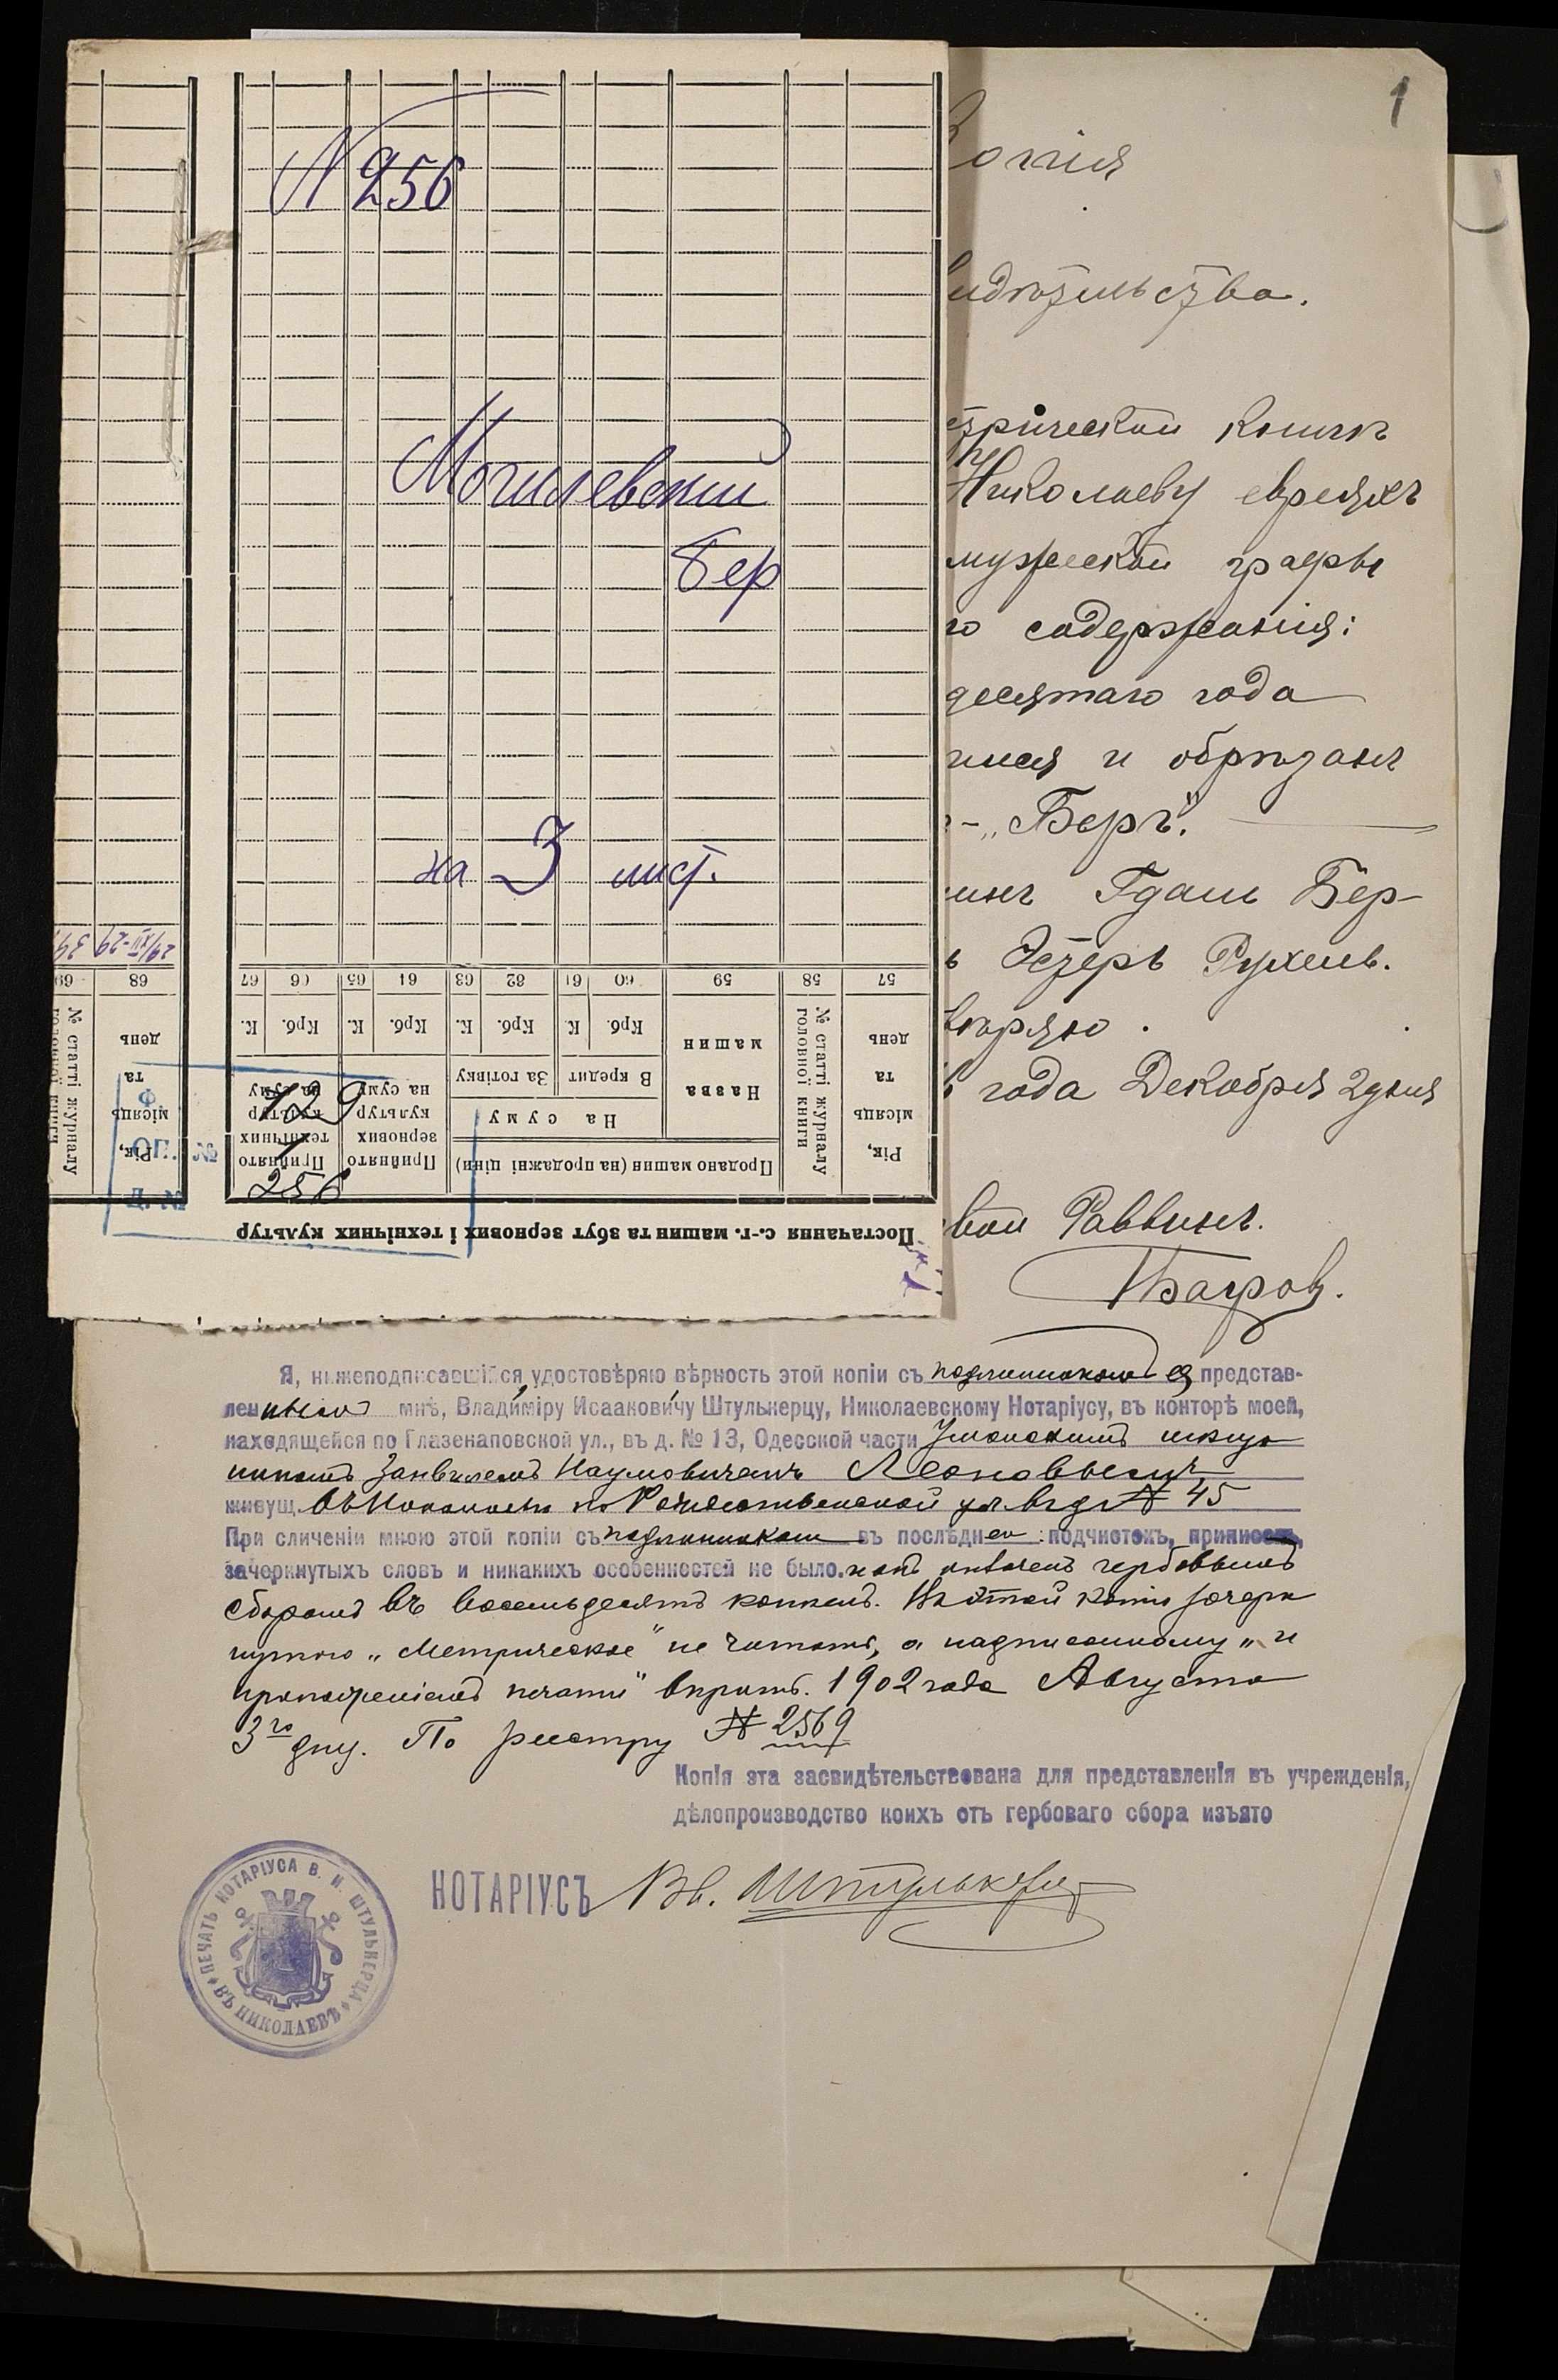 1
N 256
Могилевский
Бер
на 3 лист.
29/XII-29 39
57 58 59 60 61 62 63 64 65 66 67
68 69
Крб. К. Крб. К. Крб. К. Крб. К.
Рік, місяць та день
№ статті журналу головної книги
Назва машин
В кредит За готівку
На суму
Продано машин (на продажні ціни)
Прийнято зернових культур на суму
Прийнято технічних культур на суму
Рік, місяць та день
№ статті журналу головної книги
129
1
256
Постачання с.-г. машин та збут зернових і технічних культур
опія
идѣтельства.
трической книгѣ
Николаеву евреяхъ
мужеской графы
го содержанія:
десятаго года
лися и обрѣзанъ
"Беръ".
инъ Гдаль Бер-
ь Эстеръ Рухель.
вѣряю.
года Декабря 2 дня
вой Раввинъ.
Я, нижеподписавшійся, удостовѣряю вѣрность этой копіи съ подлинникомъ ея, представ-
леннымъ мнѣ, Владиміру Исааковичу Штулькерцу, Николаевскому Нотаріусу, въ конторѣ моей,
находящейся по Глазенаповской ул., въ д. № 13, Одесской части Уманскимъ мѣща
ниномъ Занвилемъ Наумовичемъ
живущ. въ Николаевѣ по Рождественской ул. въ д. № 45
При сличеніи мною этой копіи съ подлинникомъ въ послѣднемъ подчистокъ, приписокъ,
зачеркнутыхъ словъ и никакихъ особенностей не было.
сборомъ въ восемьдесятъ копѣекъ. Въ этой копіи зачерк
нутого „Метрическое" не читать, а надписанному „и
приложеніемъ печати" вѣрить. 1902 года Августа
3го дня. По реестру № 2569
Копія эта засвидѣтельствована для представленія въ учрежденія,
дѣлопроизводство коихъ отъ гербоваго сбора изъято
НОТАРІУСЪ Вл. Штулькерц
ПЕЧАТЬ НОТАРІУСА В. И. ШТУЛЬКЕРЦА
ВЪ НИКОЛАЕВѢ